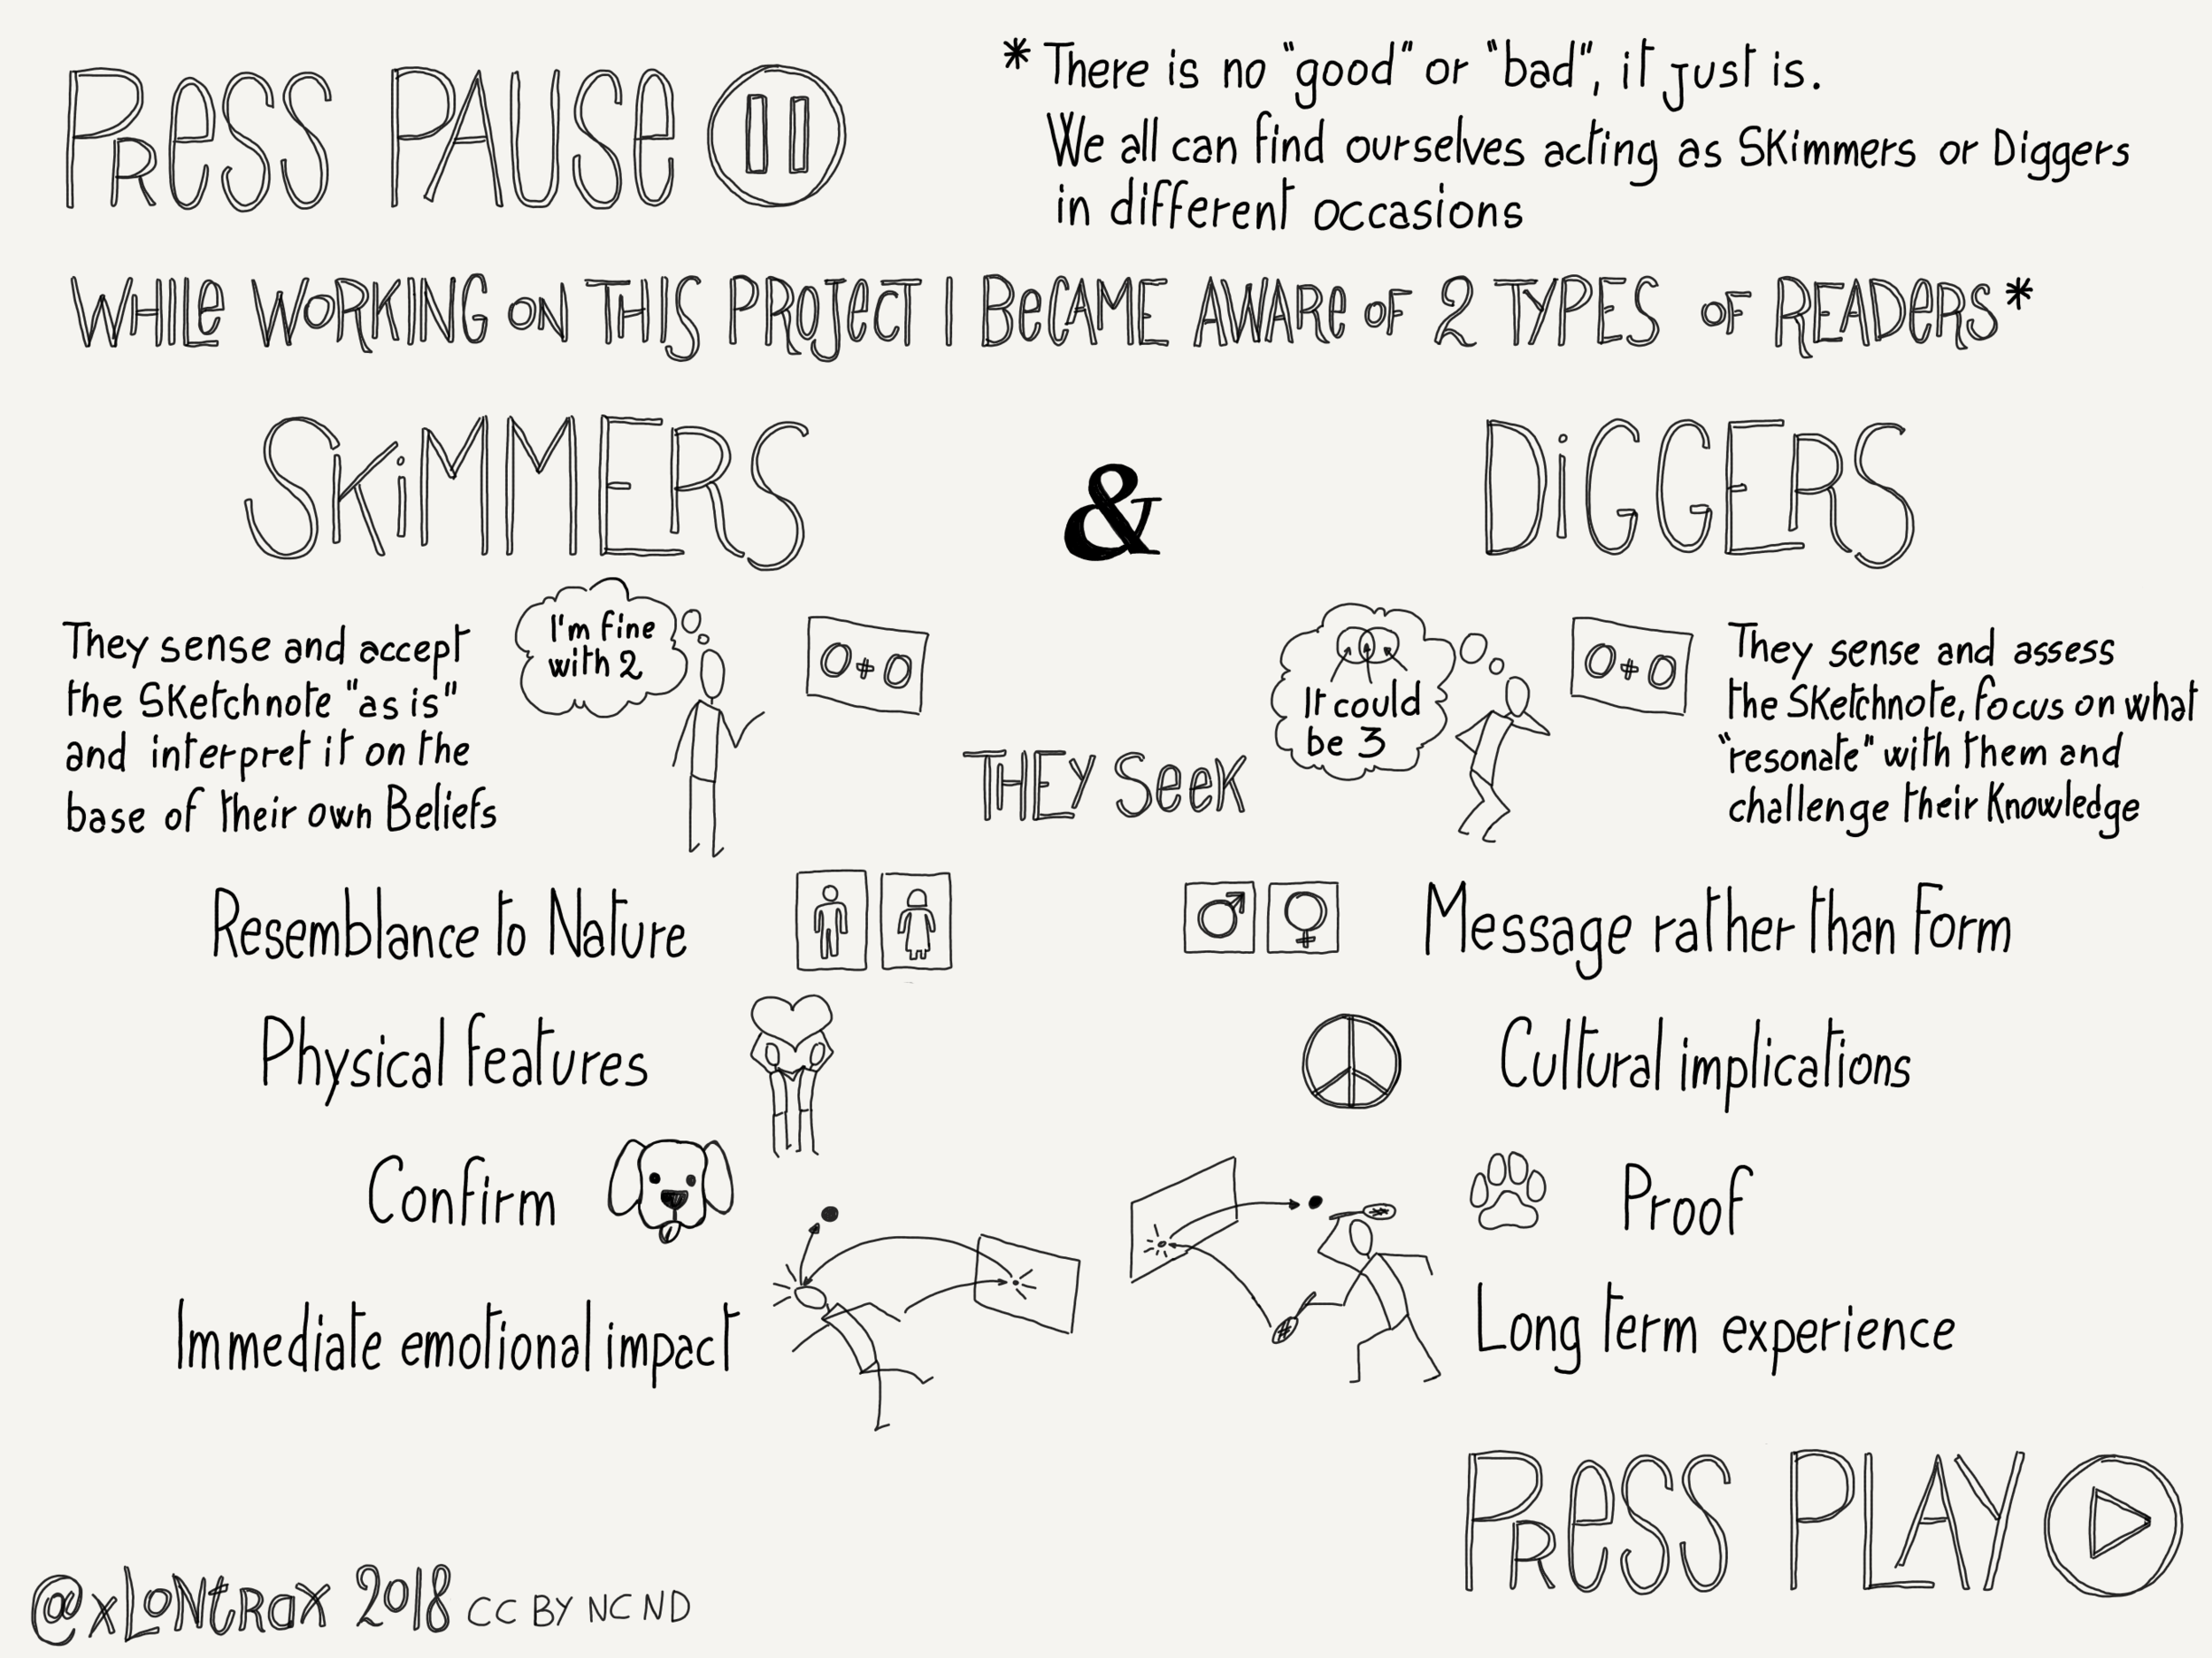 PRess PAUSe
* There is no "good" or "bad", it just is.
We all can find ourselves acting as Skimmers or Diggers
in different occasions
WHILe WORKING ON THIS PROJecT I BeCAME AWARe OF 2 TYPES OF READeRS*
SKiMMERS & DiGGERS
They sense and accept
the Sketchnote "as is"
and interpret it on the
base of their own Beliefs
I'm fine
with 2
O+O
THEY SeeK
It could
be 3
O+O
They sense and assess
the Sketchnote, focus on what
"resonate" with them and
challenge their Knowledge
Resemblance to Nature
Message rather than Form
Physical features
Cultural implications
Confirm
Proof
Immediate emotional impact
Long term experience
PRess PLAY
@xLoNtRax 2018 CC BY NC ND